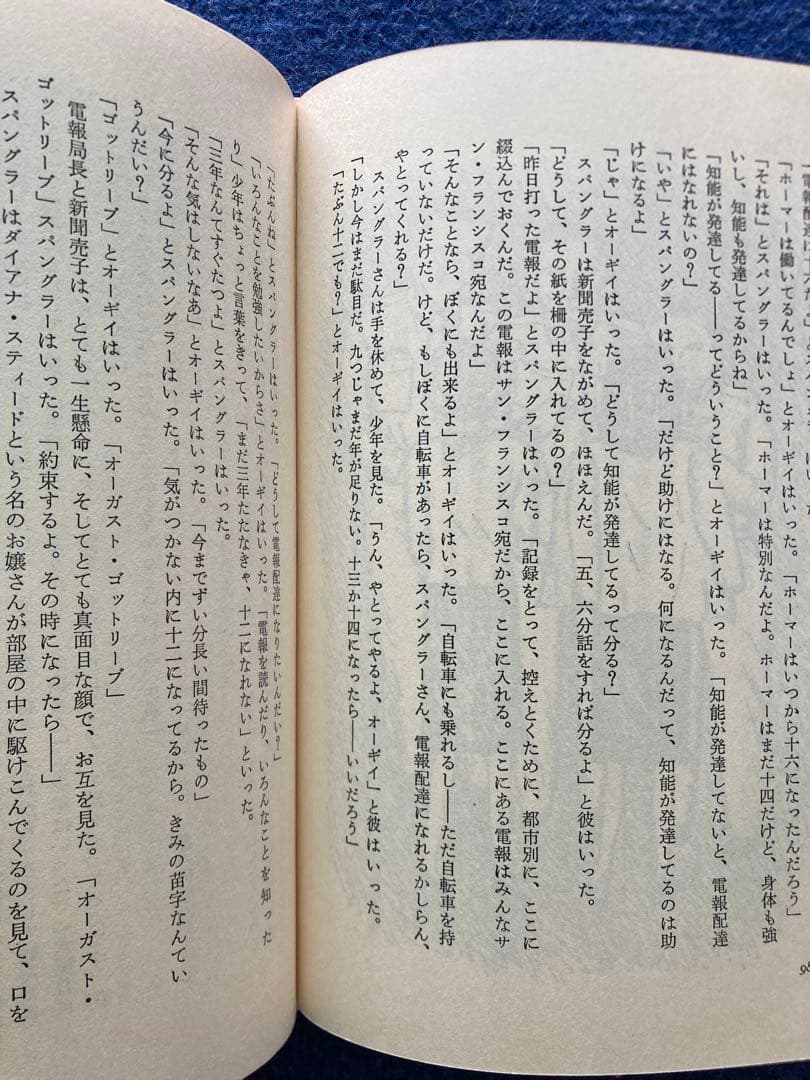 「ホーマーは働いてるんでしょ」「ホーマーはいつから十六になったんだろう」
「それは」とスパングラーはいった。「ホーマーは特別なんだよ。ホーマーはまだ十四だけど、身体も強
いし、知能も発達してるからね」
「知能が発達してる——ってどういうこと?」とオーギイはいった。「知能が発達してないと、電報配達
にはなれないの?」
「いや」とスパングラーはいった。「だけど助けにはなる。何になるんだって、知能が発達してるのは助
けになるよ」
「じゃ」とオーギイはいった。「どうして知能が発達してるって分る?」
スパングラーは新聞売子をながめて、ほほえんだ。「五、六分話をすれば分るよ」と彼はいった。
「どうして、その紙を柵の中に入れてるの?」
「昨日打った電報だよ」とスパングラーはいった。「記録をとって、控えとくために、都市別に、ここに
綴込んでおくんだ。この電報はサン・フランシスコ宛だから、ここに入れる。ここにある電報はみんなサ
ン・フランシスコ宛なんだよ」
「そんなことなら、ぼくにも出来るよ」とオーギイはいった。「自転車にも乗れるし——ただ自転車を持
っていないだけだ。けど、もしぼくに自転車があったら、スパングラーさん、電報配達になれるかしらん、
やとってくれる?」
スパングラーさんは手を休めて、少年を見た。「うん、やとってやるよ、オーギイ」と彼はいった。
「しかし今はまだ駄目だ。九つじゃまだ年が足りない。十三か十四になったら——いいだろう」
「たぶん十二でも?」とオーギイはいった。
98
「たぶんね」とスパングラーはいった。「どうして電報配達になりたいんだい?」
「いろんなことを勉強したいからさ」とオーギイはいった。「電報を読んだり、いろんなことを知った
り」少年はちょっと言葉をきって、「まだ三年たたなきゃ、十二になれない」といった。
「三年なんてすぐたつよ」とスパングラーはいった。
「そんな気はしないなあ」とオーギイはいった。「今までずい分長い間待ったもの」
「今に分るよ」とスパングラーはいった。「気がつかない内に十二になってるから。きみの苗字なんてい
うんだい?」
「ゴットリーブ」とオーギイはいった。「オーガスト・ゴットリーブ」
電報局長と新聞売子は、とても一生懸命に、そしてとても真面目な顔で、お互を見た。「オーガスト・
ゴットリーブ」スパングラーはいった。「約束するよ。その時になったら——」
スパングラーはダイアナ・スティードという名のお嬢さんが部屋の中に駆けこんでくるのを見て、口を